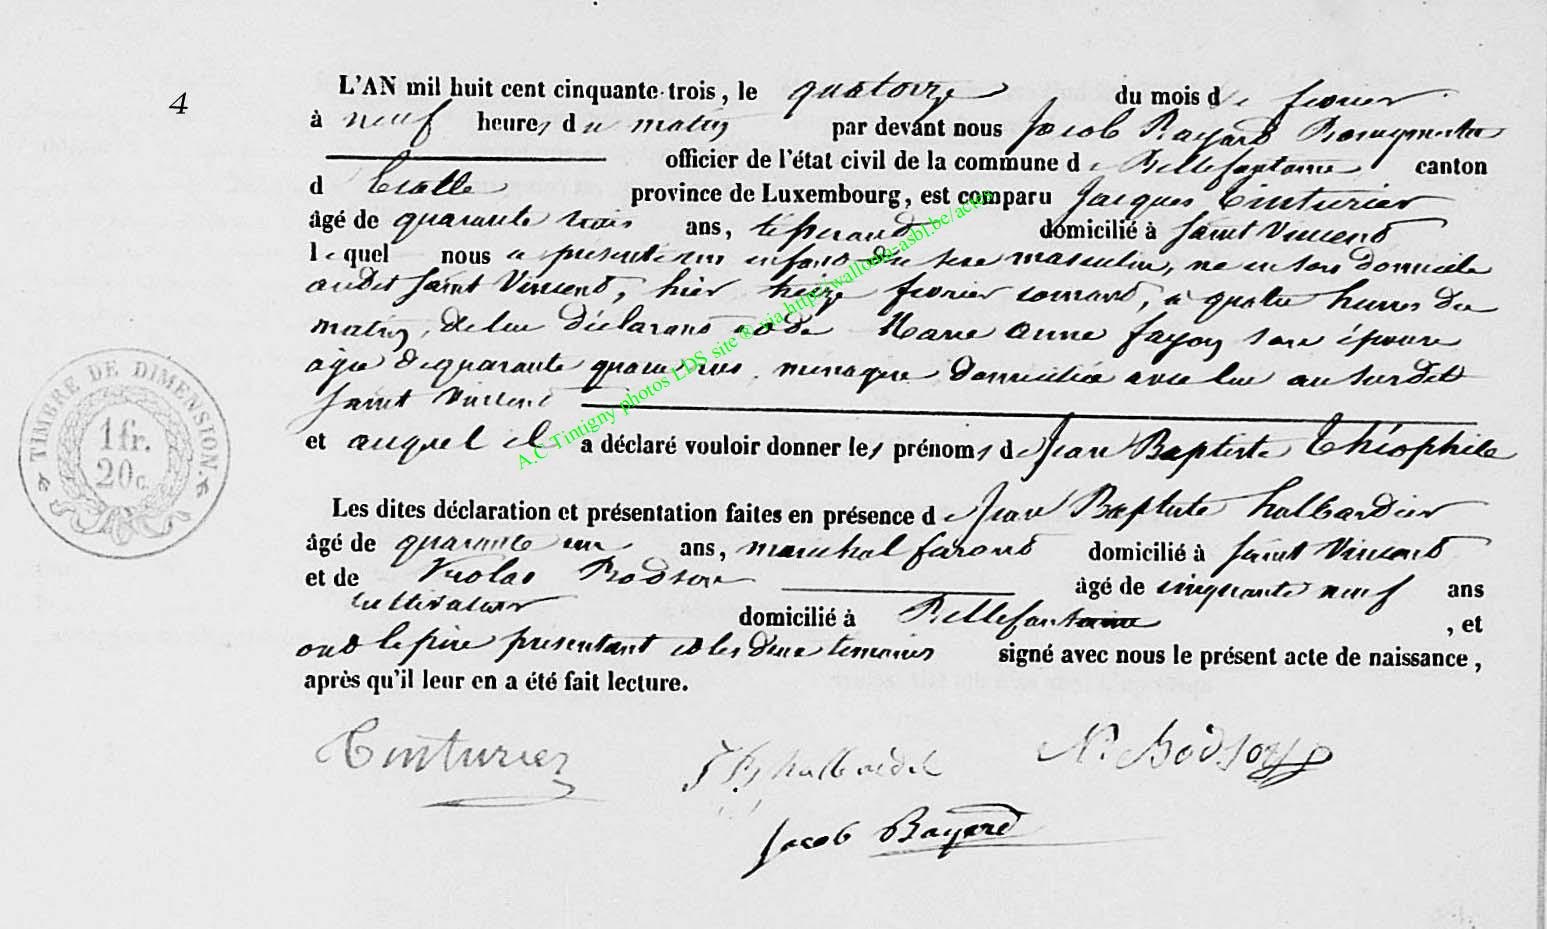 4
L'AN mil huit cent cinquante-trois, le quatorze du mois de fevrier
à neuf heures du matin par devant nous Jacob Bayard Bourgmestre
officier de l'état civil de la commune de Bellefontaine canton
d'Etalle province de Luxembourg, est comparu Jacques Tinturier
âgé de quarante trois ans, domicilié à Saint Vincent
lequel nous a présenté un enfant du sexe masculin, né en son domicile
audit Saint Vincent, hier treize fevrier courant, à quatre heures du
matin, de lui déclarant et de Marie Anne fayon son épouse
agée de quarante quatre ans, ménagère domiciliée avec lui au susdit
Saint Vincent
et auquel il a déclaré vouloir donner les prénoms de Jean Baptiste Théophile
Les dites déclaration et présentation faites en présence de Jean Baptiste halbardier
âgé de quarante un ans, marechal ferant domicilié à Saint Vincent
et de Nicolas Bodson âgé de cinquante neuf ans
cultivateur domicilié à Bellefontaine, et
ont le père présentant et les deux temoins signé avec nous le présent acte de naissance,
après qu'il leur en a été fait lecture.
Tinturier
N. Bodson
Jacob Bayard
TIMBRE DE DIMENSION
1 fr.
20 c.
A.C Tintigny photos LDS site ® via http://wallonia-asbl.be/actes